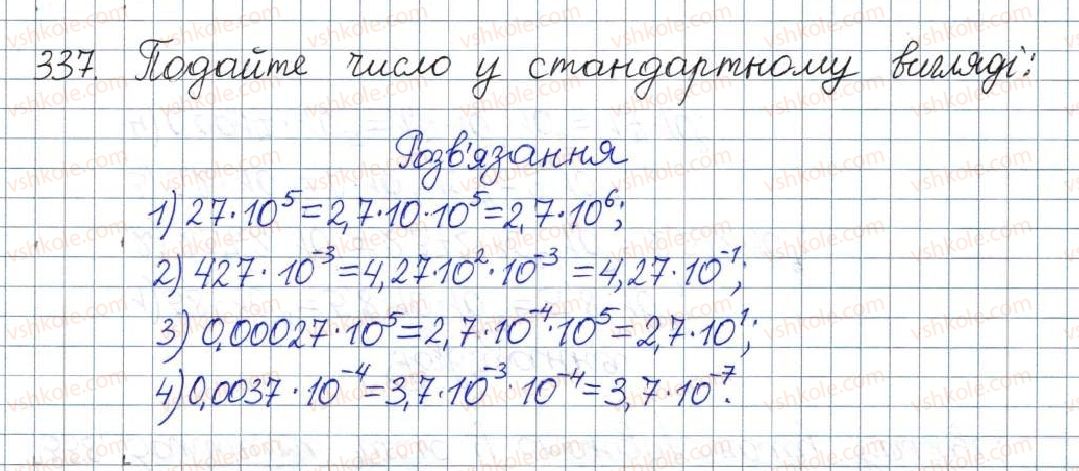 337. Подайте число у стандартному вигляді:
Розв'язання
1) 27·10⁵=2,7·10·10⁵=2,7·10⁶;
2) 427·10⁻³=4,27·10²·10⁻³=4,27·10⁻¹;
3) 0,00027·10⁵=2,7·10⁻⁴·10⁵=2,7·10¹;
4) 0,0037·10⁻⁴=3,7·10⁻³·10⁻⁴=3,7·10⁻⁷.